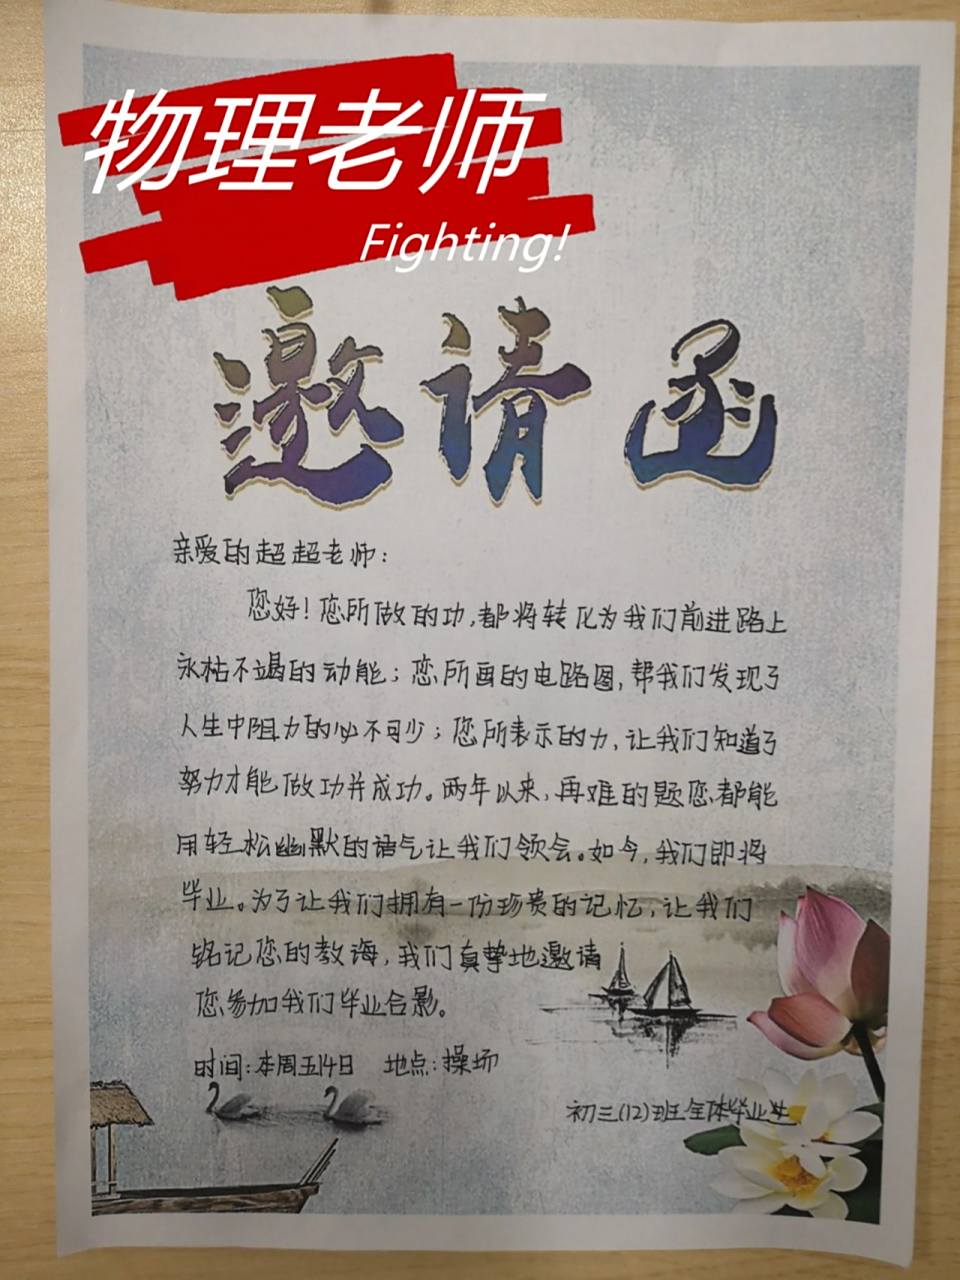 物理老师
Fighting!
邀请函
亲爱的超超老师:
您好!您所做的功,都将转化为我们前进路上
永枯不竭的动能;您所画的电路图,帮我们发现了
人生中阻力的必不可少;您所表示的力,让我们知道了
努力才能做功并成功。两年以来,再难的题您都能
用轻松幽默的语气让我们领会。如今,我们即将
毕业。为了让我们拥有一份珍贵的记忆,让我们
铭记您的教诲,我们真挚地邀请
您参加我们毕业合影。
时间:本周五14日 地点:操场
初三(12)班全体毕业生